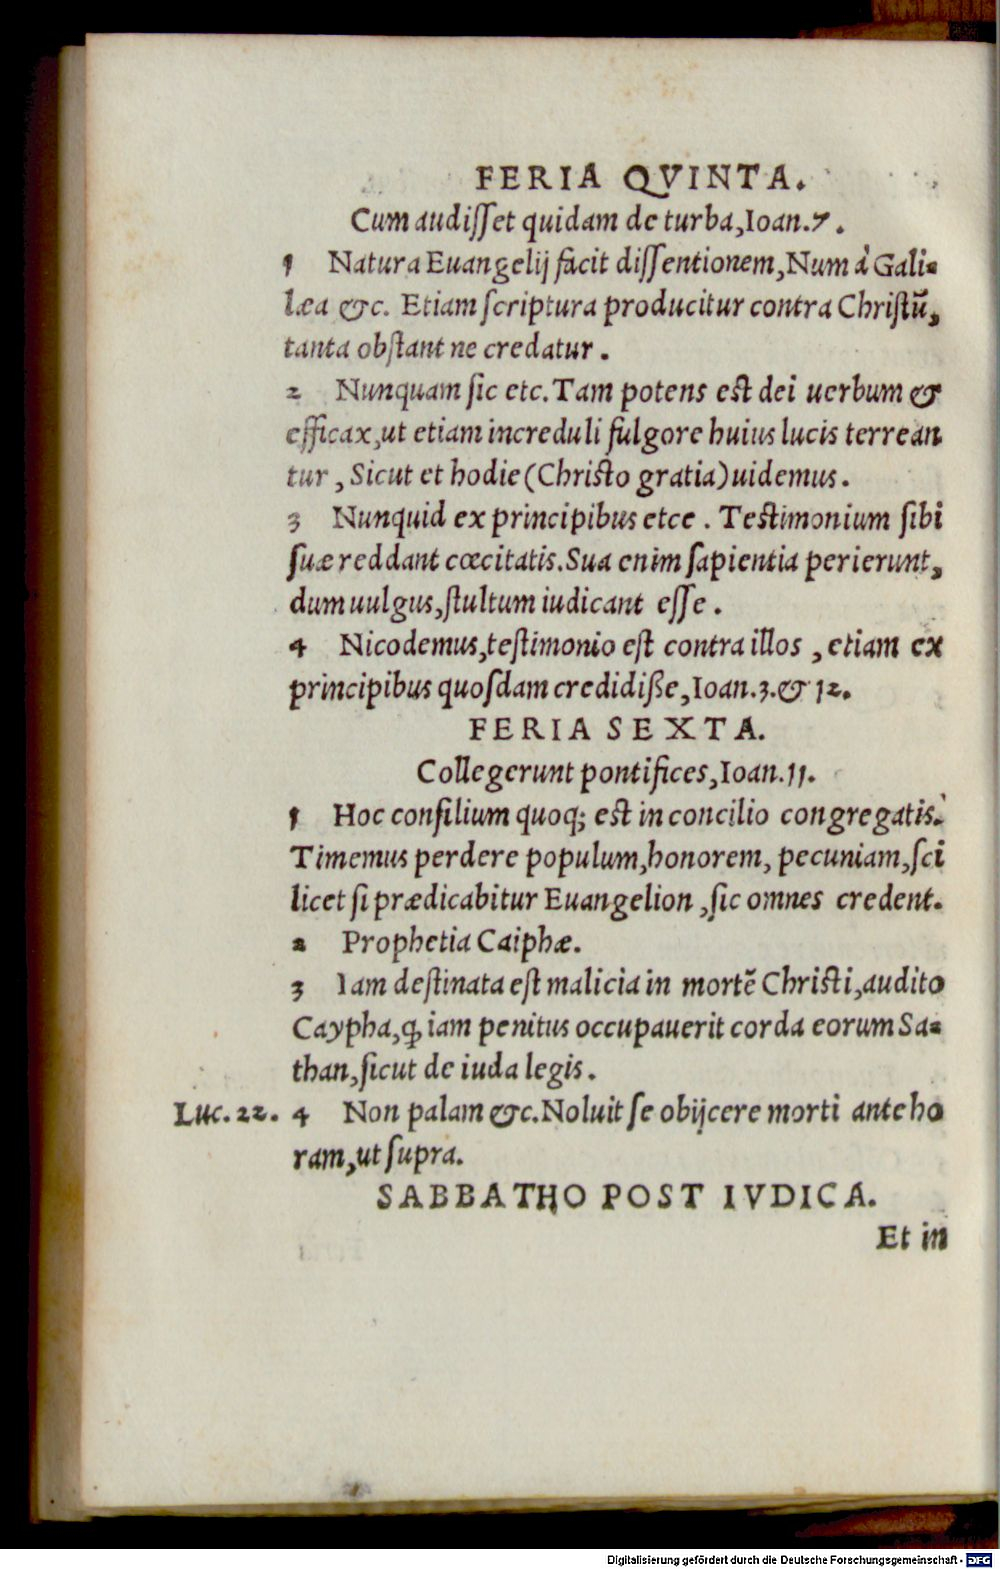 FERIA QVINTA.
Cum audiſſet quidam de turba, Ioan.7.
1 Natura Euangelij facit diſſentionem, Num à Gali-
læa &c. Etiam ſcriptura producitur contra Chriſtū,
tanta obſtant ne credatur.
2 Nunquam ſic etc. Tam potens est dei uerbum &
efficax, ut etiam increduli fulgore huius lucis terrean
tur, Sicut et hodie (Christo gratia) uidemus.
3 Nunquid ex principibus etce. Testimonium ſibi
ſuæ reddant cœcitatis. Sua enim ſapientia perierunt,
dum uulgus, ſtultum iudicant eſſe.
4 Nicodemus, teſtimonio eſt contra illos, etiam ex
principibus quoſdam credidiße, Ioan.3.& 12.
FERIA SEXTA.
Collegerunt pontifices, Ioan.11.
1 Hoc conſilium quoq; est in concilio congregatis.
Timemus perdere populum, honorem, pecuniam, ſci
licet ſi prædicabitur Euangelion, ſic omnes credent.
2 Prophetia Caiphæ.
3 Iam deſtinata eſt malicia in mortē Christi, audito
Caypha, ꝙ iam penitus occupauerit corda eorum Sa-
than, ſicut de iuda legis.
Luc.22. 4 Non palam &c. Noluit ſe obijcere morti ante ho
ram, ut ſupra.
SABBATHO POST IVDICA.
Et in
Digitalisierung gefördert durch die Deutsche Forschungsgemeinschaft - DFG